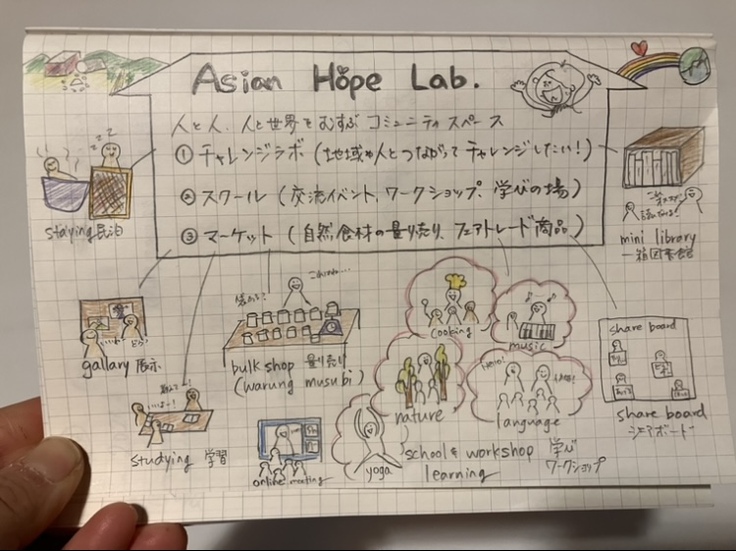 Asian Hope Lab.
人と人、人と世界をむすぶ コミュニティスペース
① チャレンジラボ (地域や人とつながってチャレンジしたい!)
② スクール (交流イベント、ワークショップ、学びの場)
③ マーケット (自然食材の量り売り、フェアトレード商品)
zzz
staying 民泊
mini library
一箱図書館
gallary 展示
bulk shop 量り売り
(warung musubi)
cooking
music
nature
Hello!
language
share board
share board
シェアボード
studying 学習
online meeting
yoga
school & workshop 学び
learning ワークショップ